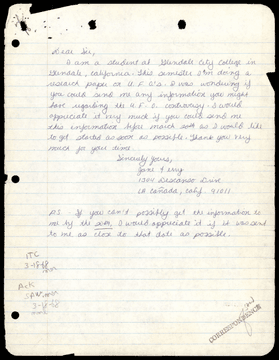 Dear Sir,
I am a student at Glendale City College in
Glendale, California. This semester I'm doing a
research paper on U.F.O.'s. I was wondering if
you could send me any information you might
have regarding the U.F.O. controversy. I would
appreciate it very much if you could send me
this information after march as I would like
to get started as soon as possible. Thank you very
much for your time.
Sincerely yours,
1304 Descanso Drive
La Cañada, Calif. 91011
P.S. If you can't possibly get the information to
me by the 20th, I would appreciate it if it was sent
to me as close to that date as possible.
ITC
3-18-68
Ack
3-18-68
CORRESPONDENCE